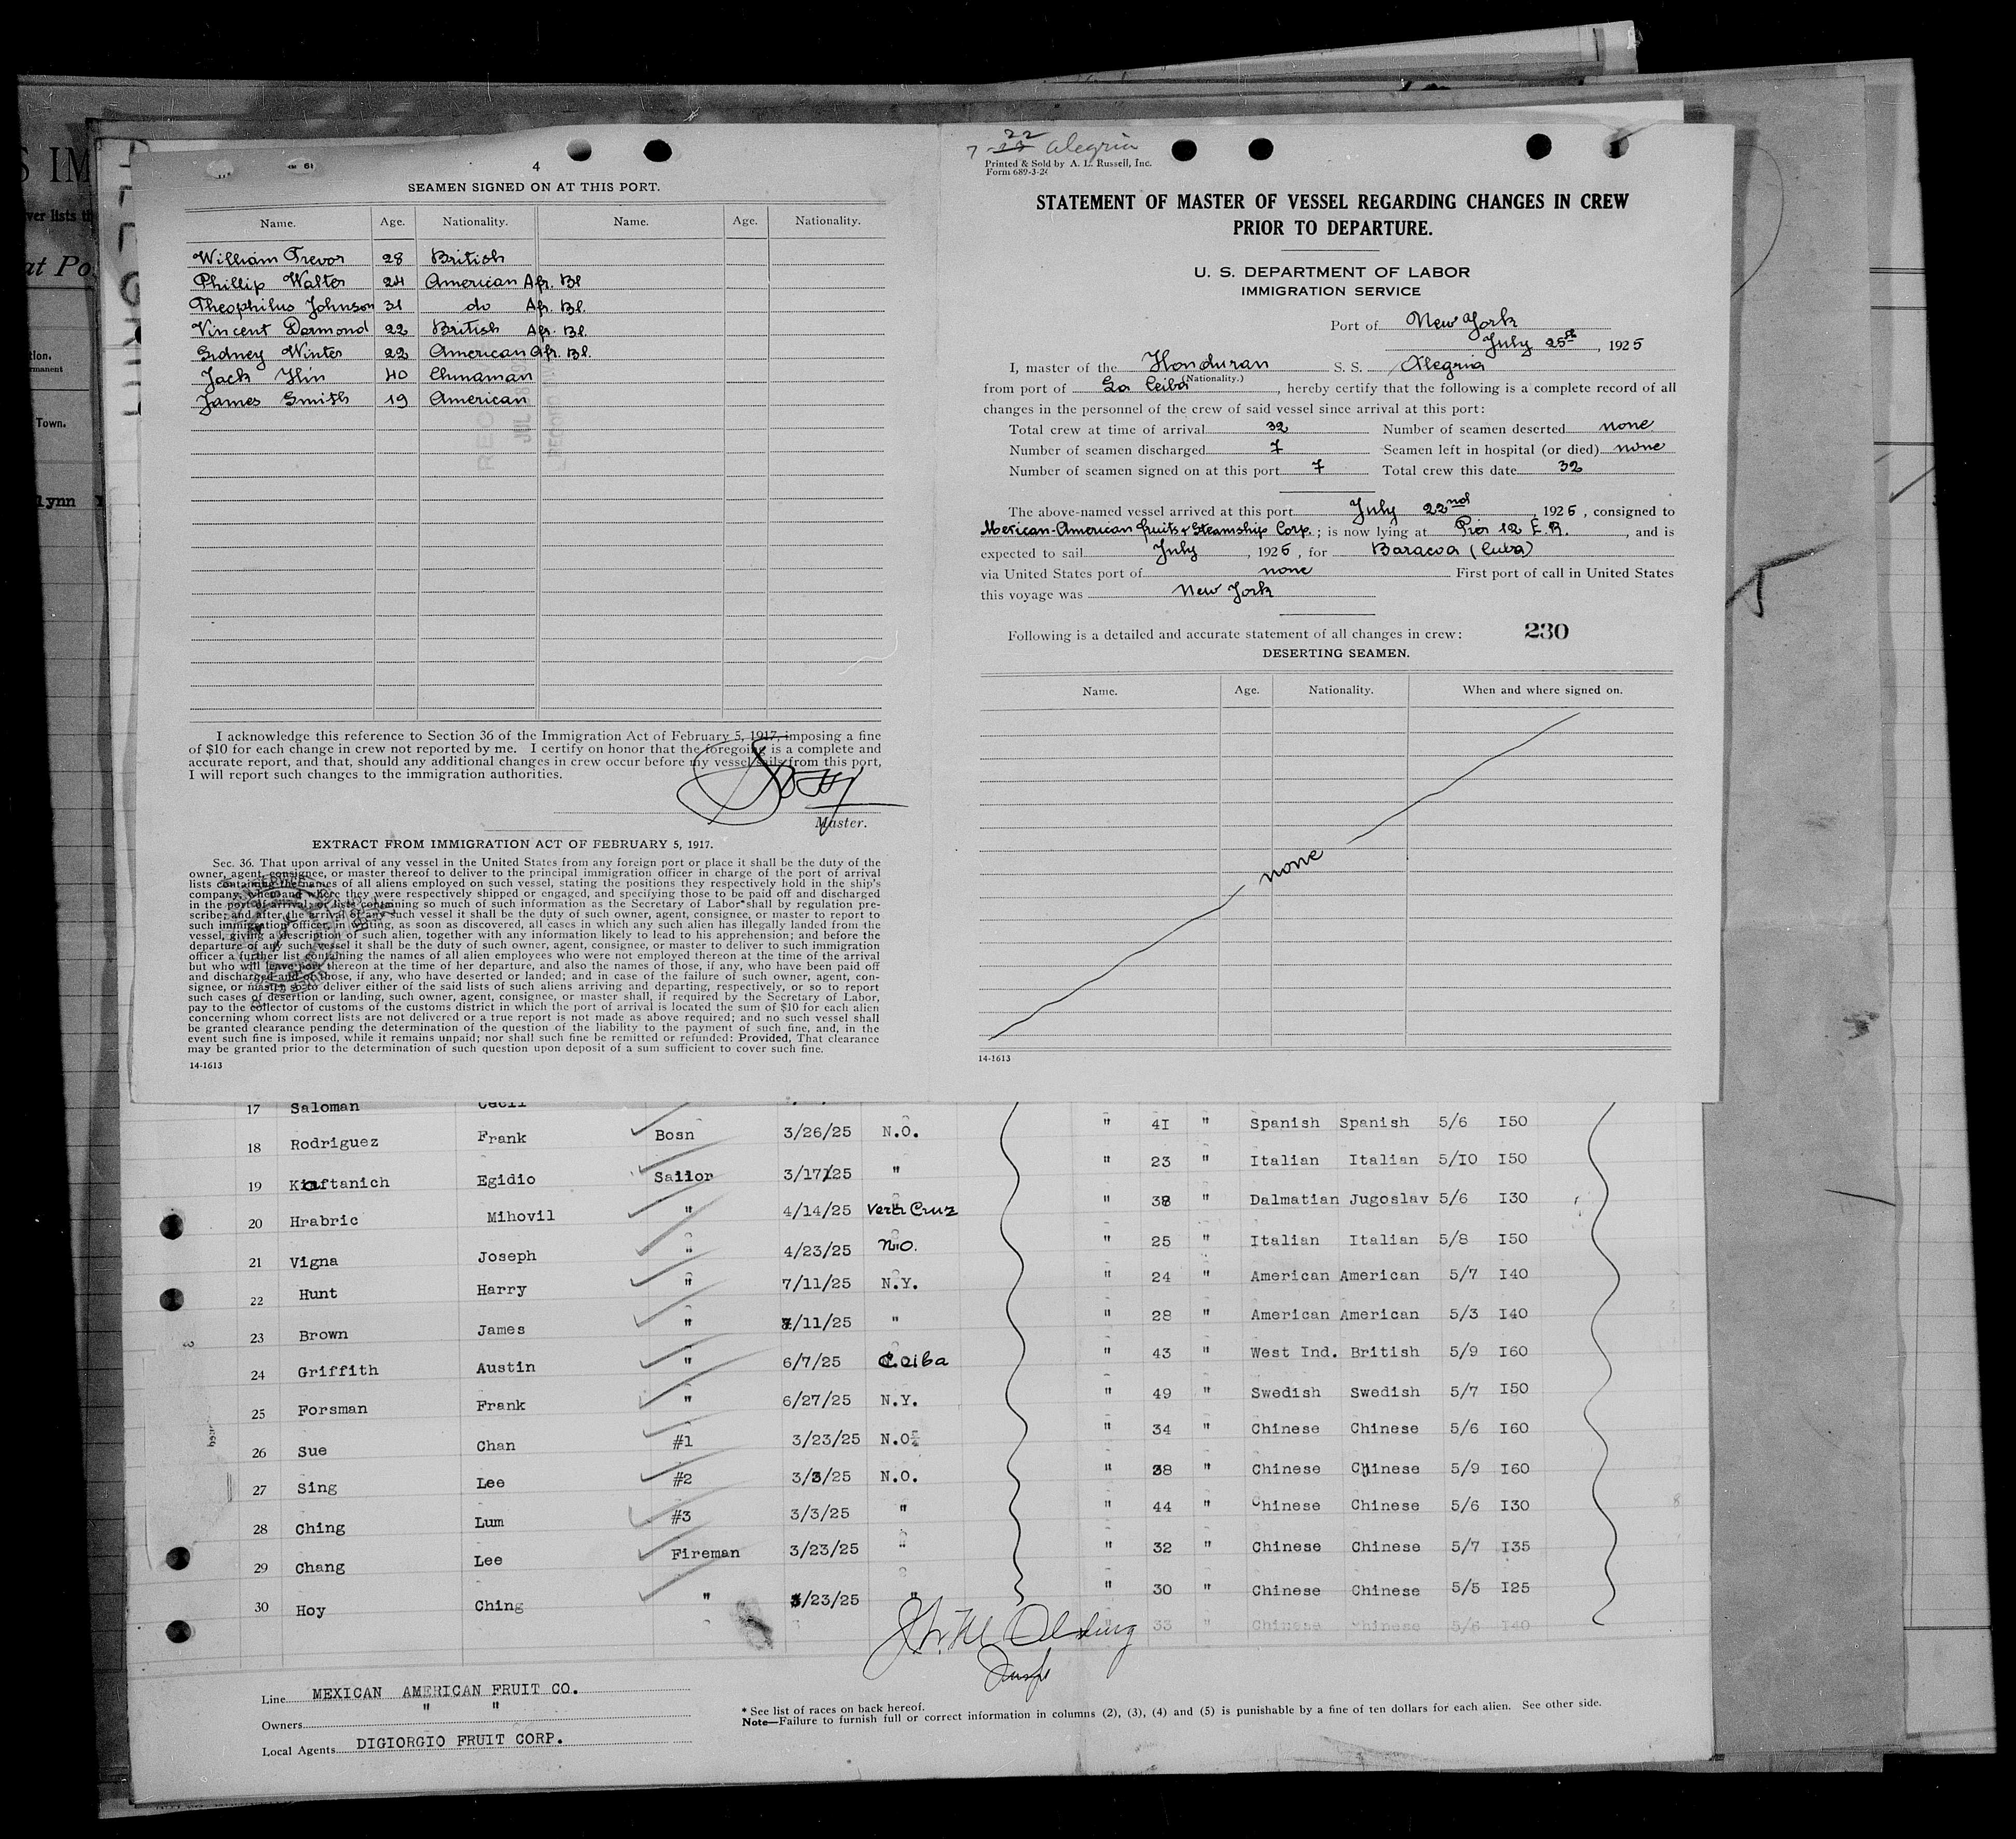 4
SEAMEN SIGNED ON AT THIS PORT.
Name. Age. Nationality. Name. Age. Nationality.
William Trevor 28 British
Phillip Walter 24 American Afr. Bl
Theophilus Johnson 31 do Afr. Bl.
Vincent Dormond 22 British Afr. Bl.
Sidney Winter 22 American Afr. Bl.
Jack Hin 40 Chinaman
James Smith 19 American
I acknowledge this reference to Section 36 of the Immigration Act of February 5, 1917, imposing a fine
of $10 for each change in crew not reported by me. I certify on honor that the foregoing is a complete and
accurate report, and that, should any additional changes in crew occur before my vessel sails from this port,
I will report such changes to the immigration authorities.
Master.
EXTRACT FROM IMMIGRATION ACT OF FEBRUARY 5, 1917.
Sec. 36. That upon arrival of any vessel in the United States from any foreign port or place it shall be the duty of the
owner, agent, consignee, or master thereof to deliver to the principal immigration officer in charge of the port of arrival
lists containing the names of all aliens employed on such vessel, stating the positions they respectively hold in the ship's
company, when and where they were respectively shipped or engaged, and specifying those to be paid off and discharged
in the port of arrival; or lists containing so much of such information as the Secretary of Labor shall by regulation pre-
scribe; and after the arrival of any such vessel it shall be the duty of such owner, agent, consignee, or master to report to
such immigration officer, in writing, as soon as discovered, all cases in which any such alien has illegally landed from the
vessel, giving a description of such alien, together with any information likely to lead to his apprehension; and before the
departure of any such vessel it shall be the duty of such owner, agent, consignee, or master to deliver to such immigration
officer a further list containing the names of all alien employees who were not employed thereon at the time of the arrival
but who will leave port thereon at the time of her departure, and also the names of those, if any, who have been paid off
and discharged, and of those, if any, who have deserted or landed; and in case of the failure of such owner, agent, con-
signee, or master so to deliver either of the said lists of such aliens arriving and departing, respectively, or so to report
such cases of desertion or landing, such owner, agent, consignee, or master shall, if required by the Secretary of Labor,
pay to the collector of customs of the customs district in which the port of arrival is located the sum of $10 for each alien
concerning whom correct lists are not delivered or a true report is not made as above required; and no such vessel shall
be granted clearance pending the determination of the question of the liability to the payment of such fine, and, in the
event such fine is imposed, while it remains unpaid; nor shall such fine be remitted or refunded: Provided, That clearance
may be granted prior to the determination of such question upon deposit of a sum sufficient to cover such fine.
14-1613
22
7 Alegria
Printed & Sold by A. L. Russell, Inc.
Form 689-3-2
STATEMENT OF MASTER OF VESSEL REGARDING CHANGES IN CREW
PRIOR TO DEPARTURE.
U. S. DEPARTMENT OF LABOR
IMMIGRATION SERVICE
Port of New York
July 25th, 1925
I, master of the Honduran S. S. Alegria
(Nationality.)
from port of La Ceiba, hereby certify that the following is a complete record of all
changes in the personnel of the crew of said vessel since arrival at this port:
Total crew at time of arrival 32 Number of seamen deserted none
Number of seamen discharged 7 Seamen left in hospital (or died) none
Number of seamen signed on at this port 7 Total crew this date 32
The above-named vessel arrived at this port July 22nd, 1925, consigned to
Mexican-American fruits & Steamship Corp.; is now lying at Pier 12 E.R., and is
expected to sail July, 1925, for Baracoa (Cuba)
via United States port of none First port of call in United States
this voyage was New York
Following is a detailed and accurate statement of all changes in crew: 230
DESERTING SEAMEN.
Name. Age. Nationality. When and where signed on.
none
14-1613
17 Saloman Cecil
18 Rodriguez Frank Bosn 3/26/25 N.O. " 41 " Spanish Spanish 5/6 150
19 Kaftanich Egidio Sailor 3/17/25 " " 23 " Italian Italian 5/10 150
20 Hrabric Mihovil " 4/14/25 Vera Cruz " 38 " Dalmatian Jugoslav 5/6 130
21 Vigna Joseph " 4/23/25 N.O. " 25 " Italian Italian 5/8 150
22 Hunt Harry " 7/11/25 N.Y. " 24 " American American 5/7 140
23 Brown James " 7/11/25 " " 28 " American American 5/3 140
24 Griffith Austin " 6/7/25 Ceiba " 43 " West Ind. British 5/9 160
25 Forsman Frank " 6/27/25 N.Y. " 49 " Swedish Swedish 5/7 150
26 Sue Chan #1 3/23/25 N.O. " 34 " Chinese Chinese 5/6 160
27 Sing Lee #2 3/3/25 N.O. " 38 " Chinese Chinese 5/9 160
28 Ching Lum #3 3/3/25 " " 44 " Chinese Chinese 5/6 130
29 Chang Lee Fireman 3/23/25 " " 32 " Chinese Chinese 5/7 135
30 Hoy Ching " 3/23/25 " " 30 " Chinese Chinese 5/5 125
" 33 " Chinese Chinese 5/6 140
Line MEXICAN AMERICAN FRUIT CO.
Owners " "
Local Agents DIGIORGIO FRUIT CORP.
* See list of races on back hereof.
Note—Failure to furnish full or correct information in columns (2), (3), (4) and (5) is punishable by a fine of ten dollars for each alien. See other side.